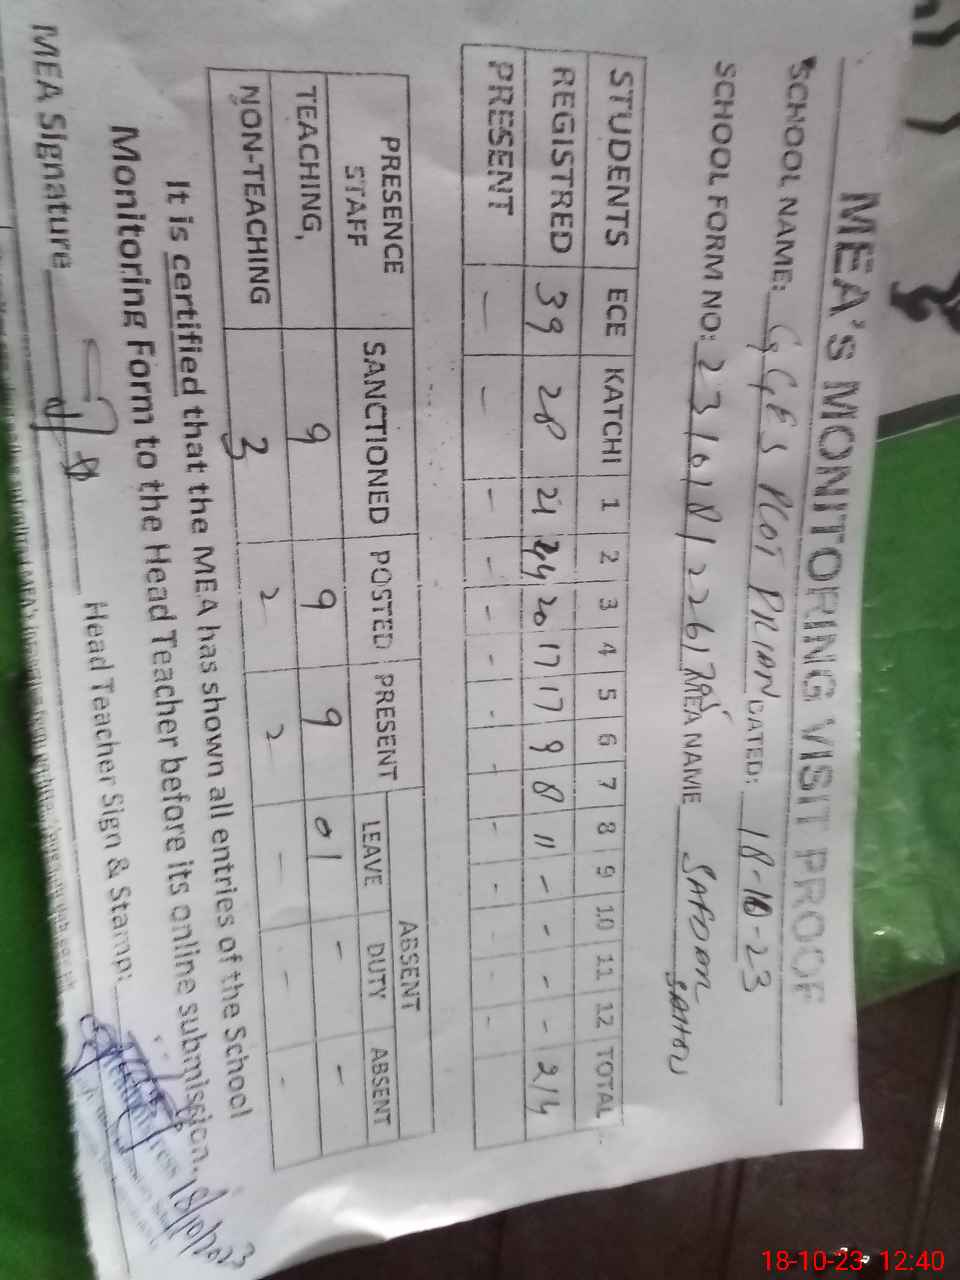 MEA's MONITORING VISIT PROOF
SCHOOL NAME: GGES PLOT DATED: 18-10-23
SCHOOL FORM NO: MEA NAME SAFDAR
STUDENTS ECE KATCHI 1 2 3 4 5 6 7 8 9 10 11 12 TOTAL
REGISTRED 39 28 21 44 20 17 17 9 8 11 - - - - 214
PRESENT - - - - - - - - - - - - - -
PRESENCE STAFF SANCTIONED POSTED PRESENT ABSENT
LEAVE DUTY ABSENT
TEACHING, 9 9 9 01 - -
NON-TEACHING 3 2 2 - - -
It is certified that the MEA has shown all entries of the School
Monitoring Form to the Head Teacher before its online submission.
MEA Signature Head Teacher Sign & Stamp:
18/10/2023
18-10-23 12:40